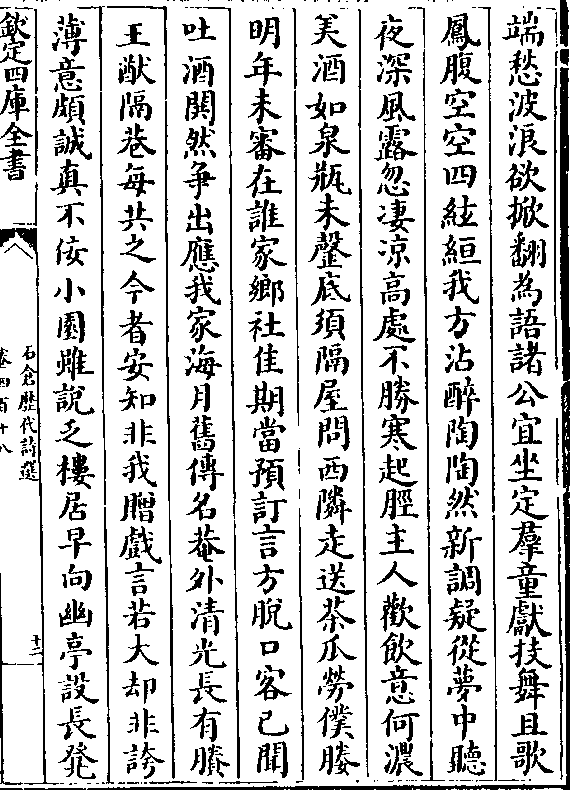 端愁波浪欲掀翻為語諸公宜坐定羣童獻技舞且歌
鳳腹空空四絃絙我方沾醉陶陶然新調疑從夢中聽
夜深風露忽凄凉高處不勝寒起脛主人歡飲意何濃
美酒如泉瓶未罄底須隔屋問西隣走送茶瓜勞僕媵
明年未審在誰家鄉社佳期當預訂言方脫口客已聞
吐酒閧然爭出應我家海月舊傳名菴外清光長有賸
王猷隔巷每共之今者安知非我贈戲言若大却非誇
薄意頗誠真不佞小園雖說乏樓居早向幽亭設長凳
欽定四庫全書
石倉歷代詩選
卷四百十八
十二